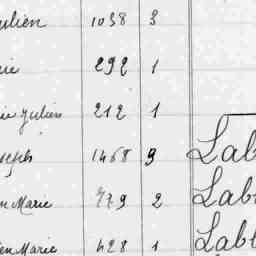 ulien 1038 3
ie 292 1
ie Julien 212 1
oseph 1468 9 Lab
n Marie 779 2 Lab
ien Marie 428 1 Lab